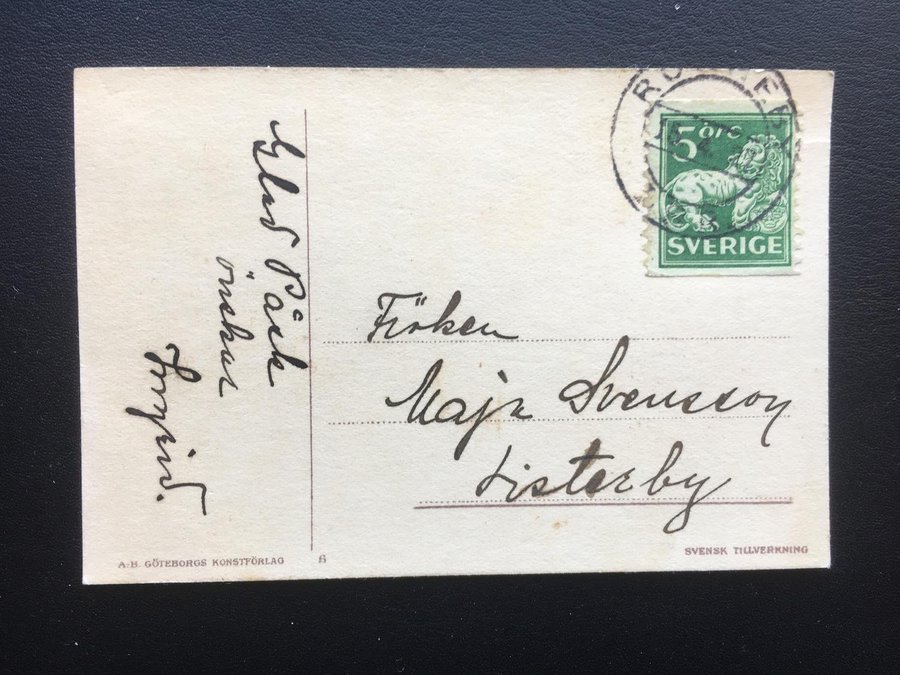 Glad Påsk
önskar
Ingrid.
Fröken
Maja Svensson
Listerby
RONNEBY
5 ÖRE
SVERIGE
A.-B. GÖTEBORGS KONSTFÖRLAG 6
SVENSK TILLVERKNING